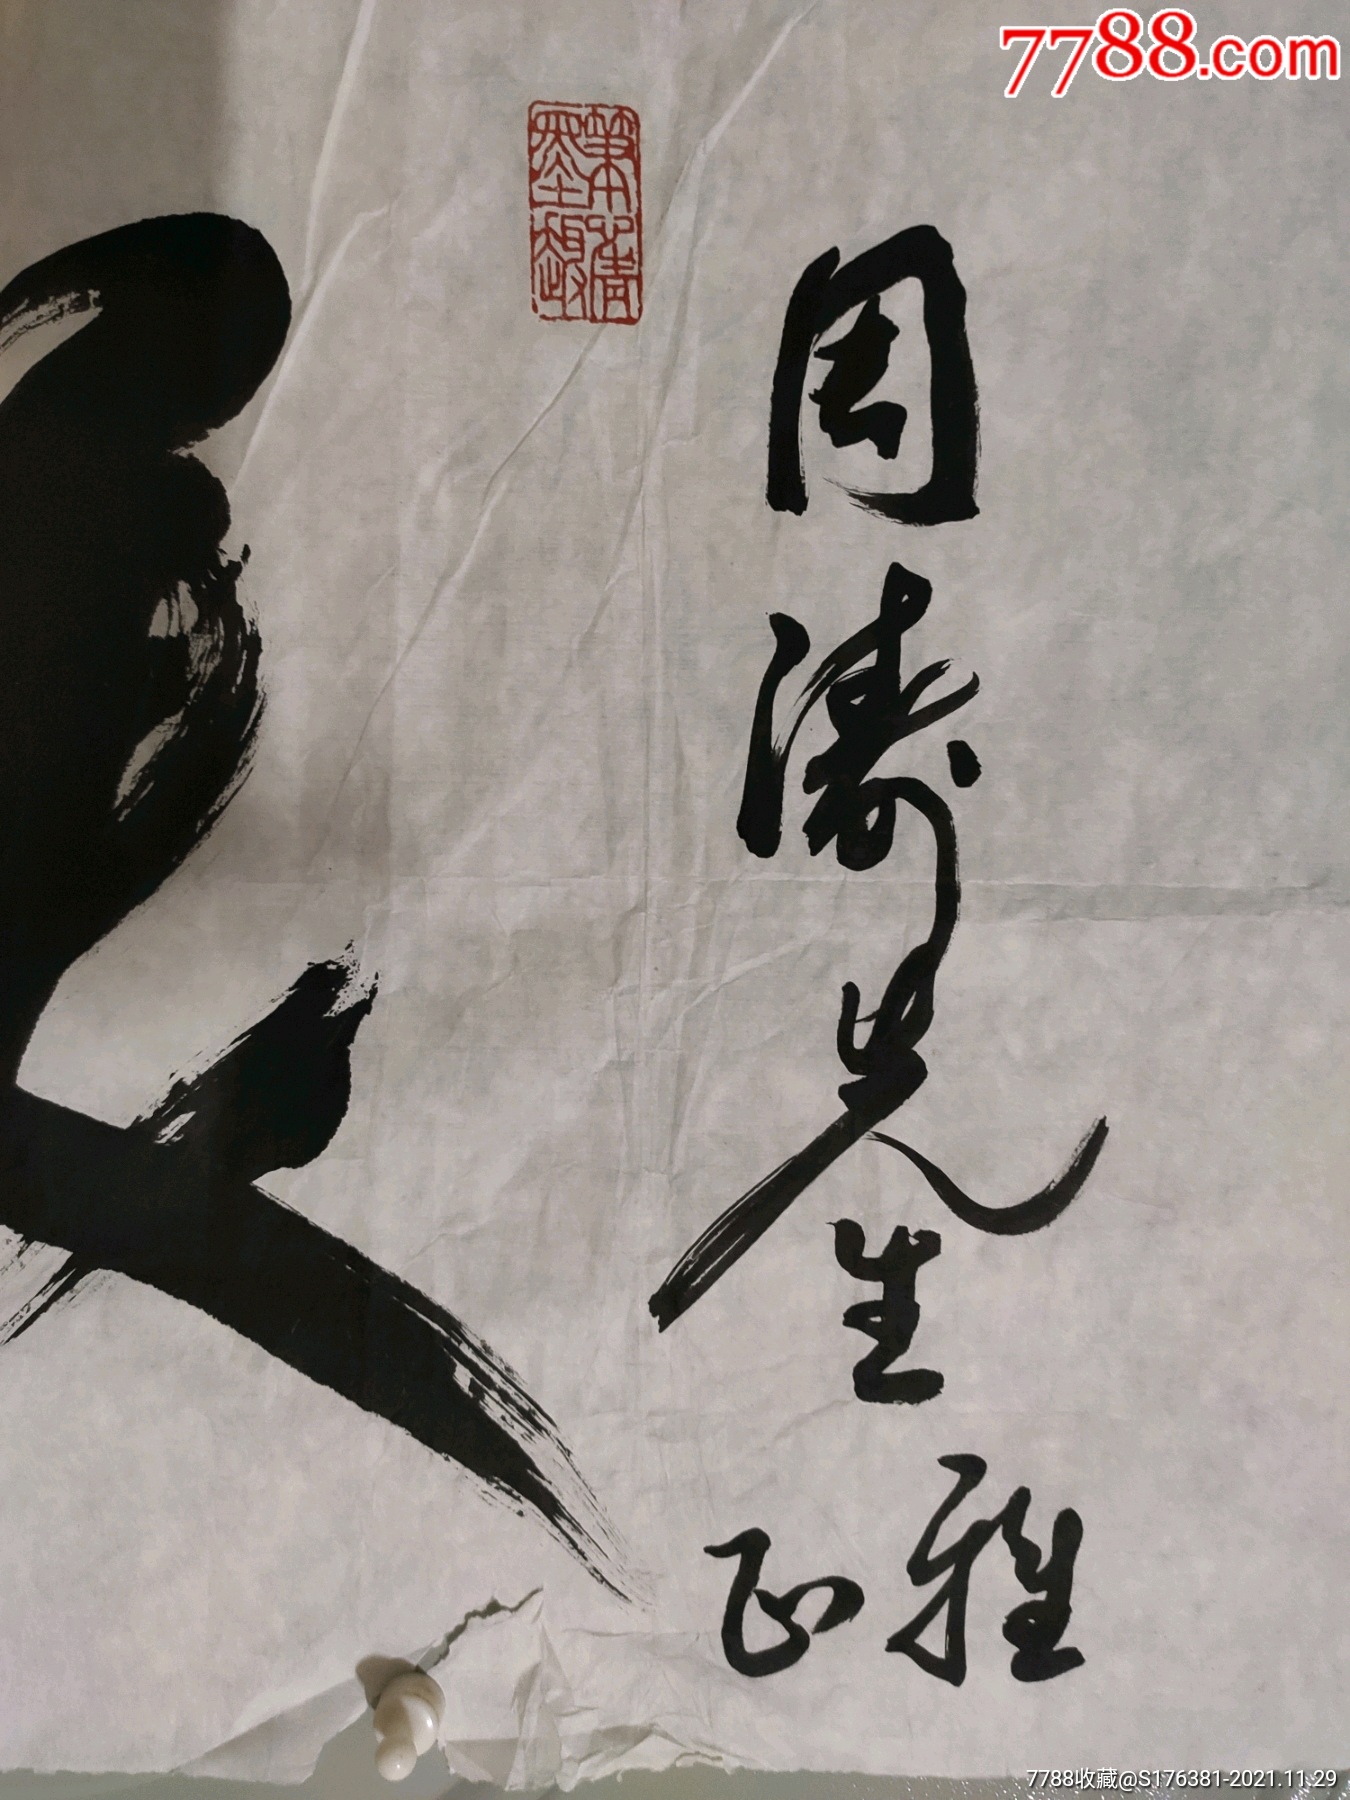 7788.com
周涛先生雅正
7788收藏@S176381-2021.11.29